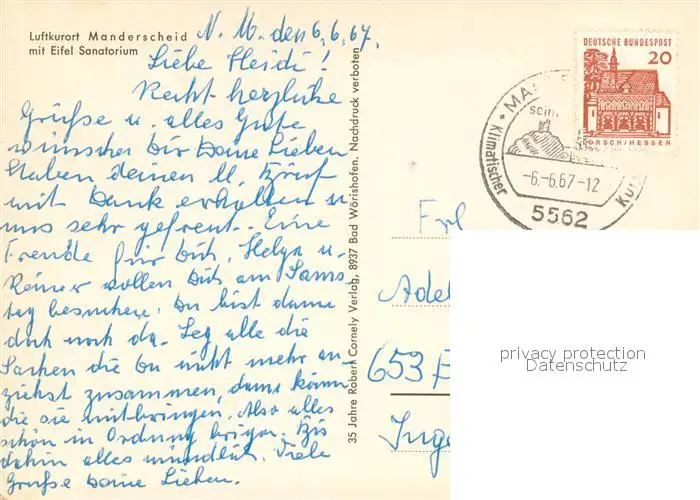 Luftkurort Manderscheid
mit Eifel Sanatorium
N. M. den 6.6.67.
Liebe Heidi!
Recht herzliche
Grüße u. alles Gute
wünschen Dir Deine Lieben
Haben deinen ll. Brief
mit Dank erhalten u
uns sehr gefreut. Eine
Freude für Dich, Helga u.
Reiner wollen Dich am Sams
tag besuchen. Du bist dann
doch noch da. Leg alle die
Sachen die Du nicht mehr an
ziehst zusammen, dann können
die sie mitbringen. Also alles
schön in Ordnung bringen. Bis
dahin alles mündlich. Viele
Grüße Deine Lieben.
35 Jahre Robert Cornely Verlag, 8937 Bad Wörishofen. Nachdruck verboten
DEUTSCHE BUNDESPOST
20
LORSCH/HESSEN
Klimatischer
-6.-6.67-12
5562
Frl
Adel
653 B
Inge
privacy protection
Datenschutz